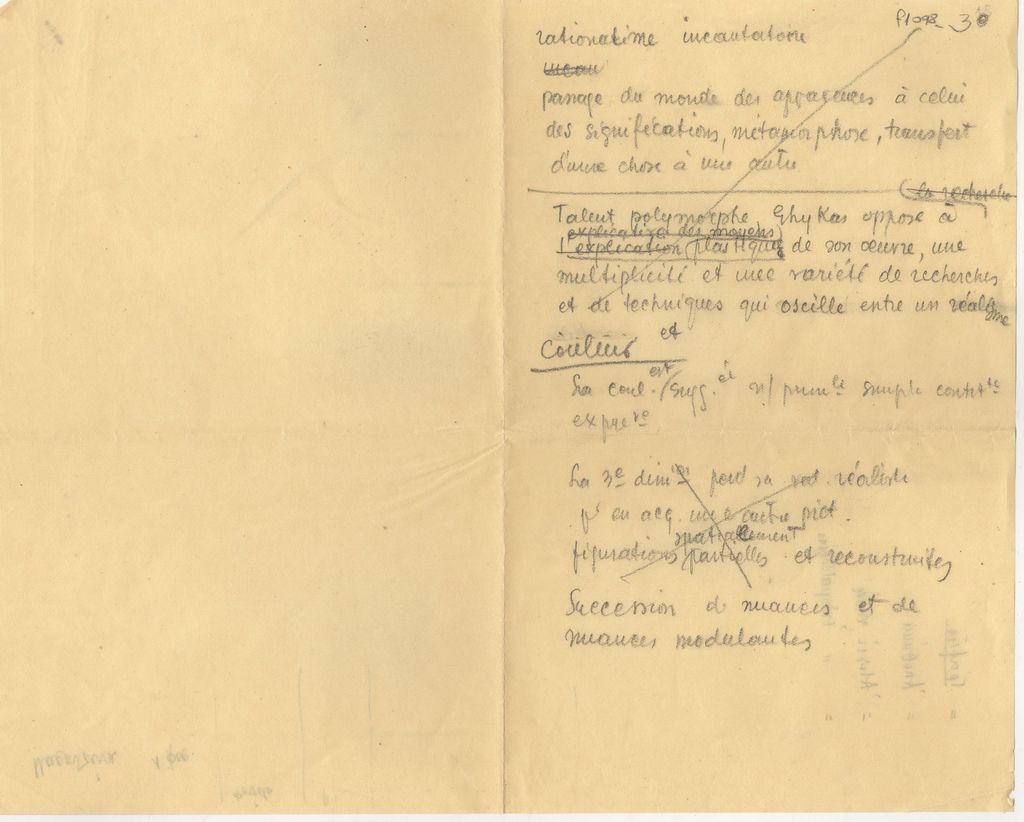 P1098_30
rationalisme incantatoire
incan
passage du monde des apparences à celui
des significations, métamorphose, transfert
d'une chose à une autre
la recherche
Talent polymorphe, Ghykas oppose à
explicative des moyens
l'explication plastique de son œuvre, une
multiplicité et une variété de recherches
et de techniques qui oscille entre un réalisme
et
Couleurs
La coul. est sugg. et n/ simple
La 3e dim perd sa réaliste
pr en acq. une autre pict.
spatialement
figurations partielles et reconstruites
Succession de nuances et de
nuances modulantes